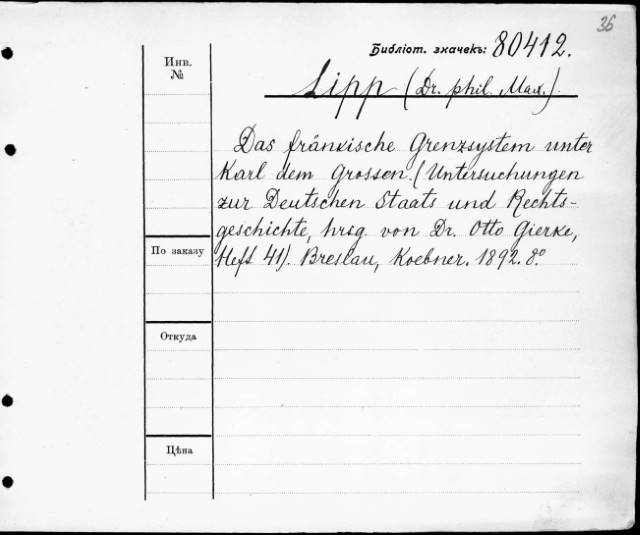 36
Библіот. значекъ: 80412.
Инв.
№
Lipp (Dr. phil. Max.)
Das fränkische Grenzsystem unter
Karl dem Grossen. (Untersuchungen
zur Deutschen Staats und Rechts-
geschichte, hrsg. von Dr. Otto Gierke,
Heft 41). Breslau, Koebner. 1892. 8°.
По заказу
Откуда
Цѣна